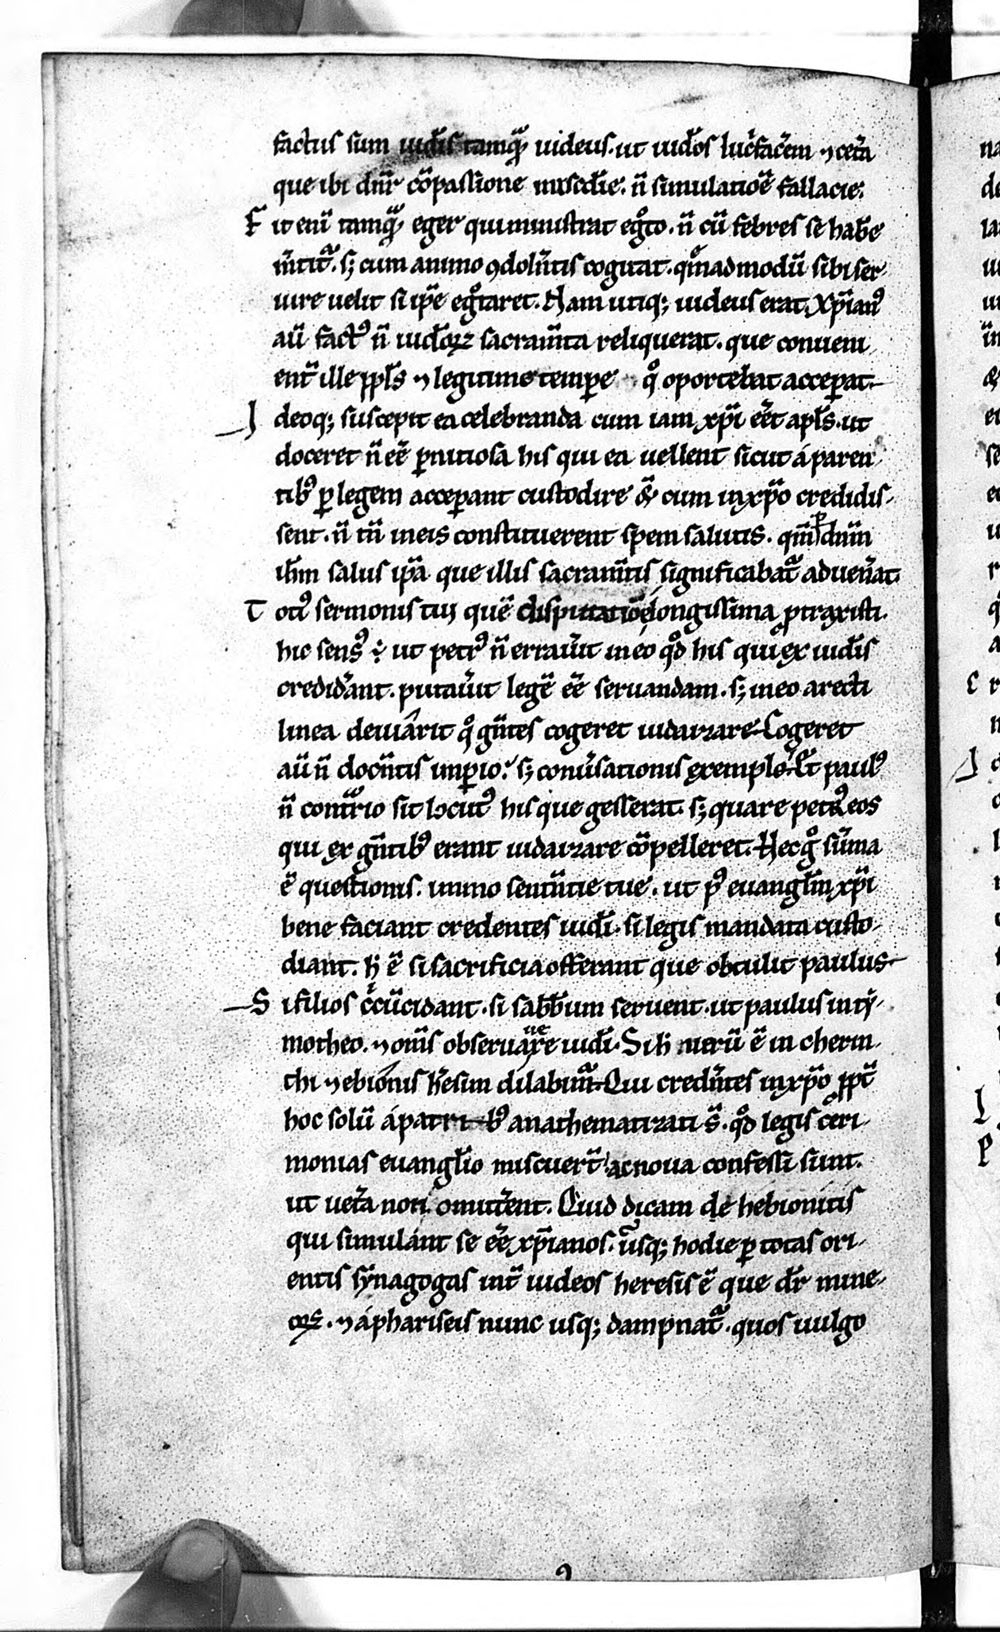 factus sum iud̅is tamqᷓ iudeus. ut iud̅os luc̅facẽm ⁊ cet̃a
que ibi dnr̅ cõpassione misc̅die. n̅ simulatiõe fallacie.
F it eni̅ tamqᷓ eger qui ministrat egͦto. n̅ cu̅ febres se hab̅e
m̅titᷓ. sꝫ cum animo ꝯdoln̅tis cogitat. qm̅admodu̅ sibi ser
uire uelit si ip̅e egͦtaret. Nam utiqꝫ iudeus erat. xp̅ianꝰ
au̅ factꝰ n̅ iud̅oꝝ sacram̅ta reliquerat. que conueni
ent̅ ille pp̅ls ⁊ legitime tempe qͦ oportebat acceperat
I deoqꝫ suscepit ea celebranda cum iam xp̅i eẽt apl̅s. ut
doceret n̅ ee̅ ꝑnitiosa his qui ea uellent sicut a paren
tibꝰ ꝑ legem acceperant custodire & cum in xp̅o credidis
sent. n̅ tn̅ in eis constituerent spem salutis. qm̅ ꝑ dnm̅
ih̅m salus ip̅a que illis sacram̅tis significabatᷓ aduen̅at
T otꝰ sermonis tui que̅ disputatiõe longissima ꝓtraxisti
hic sensꝰ ÷ ut petrꝰ n̅ errau̅it in eo qͦd his qui ex iud̅is
credid̅ant. putau̅it lege̅ ee̅ seruandam. sꝫ in eo a recti
linea deuiarit qͦ gn̅tes cogeret iudaizare. Cogeret
au̅ n̅ docn̅tis imꝑio. sꝫ conu̅sationis exemplo. Et paulꝰ
n̅ contᷓrio sit locutꝰ his que gesserat. sꝫ quare petrꝰ eos
qui ex gn̅tibꝰ erant iudaizare cõpelleret. Hec gͦ su̅ma
e̅ questionis. immo sentn̅tie tue. ut pꝰ euangl̅m xp̅i
bene faciant credentes iud̅i. si legis mandata custo
diant. h̅ e̅ si sacrificia offerant que obtulit paulus
S i filios c̅cu̅cidant. si sabb̅um seruent. ut paulus in ty
motheo. ⁊ om̅s obseruauere iud̅i. Si h̅ ueru̅ e̅ in cherin
thi ⁊ ebionis h̅esim dilabim̅. Qui credn̅tes in xp̅o ppt̅
hoc solu̅ a patribꝰ anathematizati s̅. qͦd legis ceri
monias euangl̅io miscuer̅t ac noua confessi sunt.
ut uet̃a non omitt̃ent. Quid dicam de hebionitis
qui simulant se ee̅ xp̅ianos. usqꝫ hodie ꝑ totas ori
entis synagogas int̅ iudeos heresis e̅ que dr̅ mine
oꝝ. ⁊ a phariseis nunc usqꝫ dampnatᷓ. quos uulgo